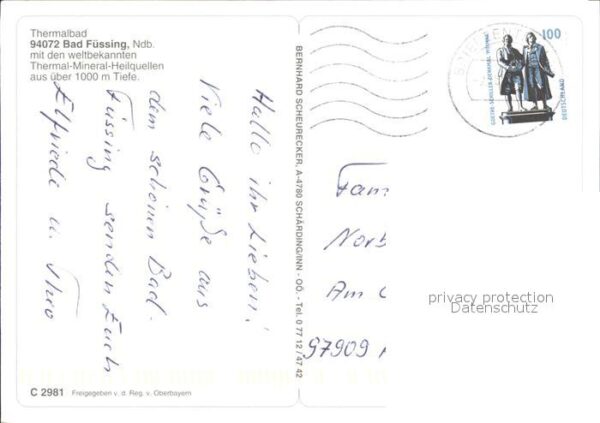 Thermalbad
94072 Bad Füssing, Ndb.
mit den weltbekannten
Thermal-Mineral-Heilquellen
aus über 1000 m Tiefe.
Hallo ihr Lieben!
Viele Grüße aus
dem schönen Bad-
Füssing senden Euch
Elfriede u. Theo
C 2981 Freigegeben v. d. Reg. v. Oberbayern
BERNHARD SCHEURECKER, A-4780 SCHÄRDING/INN - OÖ. - Tel. 0 77 12 / 47 42
100
GOETHE-SCHILLER-DENKMAL WEIMAR
DEUTSCHLAND
Fam
Norb
Am
97909
privacy protection
Datenschutz